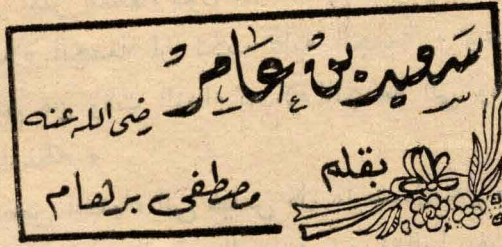 سَعيد بن عَامِر رضى الله عنه
بقلم
مصطفى برهام